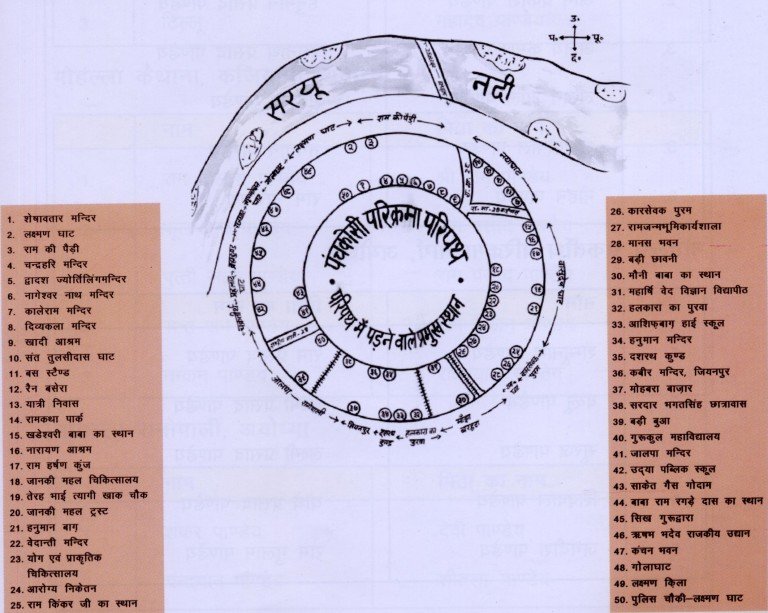 उ.
प.
पू.
द.
सरयू
नदी
राम की पैड़ी
लक्ष्मण घाट
पंचकोसी परिक्रमा परिपथ
परिपथ में पड़ने वाले प्रमुख स्थान
1. शेषावतार मन्दिर
2. लक्ष्मण घाट
3. राम की पैड़ी
4. चन्द्रहरि मन्दिर
5. द्वादश ज्योर्तिलिंगमन्दिर
6. नागेश्वर नाथ मन्दिर
7. कालेराम मन्दिर
8. दिव्यकला मन्दिर
9. खादी आश्रम
10. संत तुलसीदास घाट
11. बस स्टैण्ड
12. रैन बसेरा
13. यात्री निवास
14. रामकथा पार्क
15. खडेश्वरी बाबा का स्थान
16. नारायण आश्रम
17. राम हर्षण कुंज
18. जानकी महल चिकित्सालय
19. तेरह भाई त्यागी खाक चौक
20. जानकी महल ट्रस्ट
21. हनुमान बाग़
22. वेदान्ती मन्दिर
23. योग एवं प्राकृतिक
चिकित्सालय
24. आरोग्य निकेतन
25. राम किंकर जी का स्थान
26. कारसेवक पुरम
27. रामजन्मभूमिकार्यशाला
28. मानस भवन
29. बड़ी छावनी
30. मौनी बाबा का स्थान
31. महार्षि वेद विज्ञान विद्यापीठ
32. हलकारा का पुरवा
33. आशिफ़बाग़ हाई स्कूल
34. हनुमान मन्दिर
35. दशरथ कुण्ड
36. कबीर मन्दिर, जियनपुर
37. मोहबरा बाज़ार
38. सरदार भगतसिंह छात्रावास
39. बड़ी बुआ
40. गुरूकुल महाविद्यालय
41. जालपा मन्दिर
42. उद्‌या पब्लिक स्कूल
43. साकेत गैस गोदाम
44. बाबा राम रगड़े दास का स्थान
45. सिख गुरूद्वारा
46. ऋषभ भदेव राजकीय उद्यान
47. कंचन भवन
48. गोलाघाट
49. लक्ष्मण क़िला
50. पुलिस चौकी–लक्ष्मण घाट